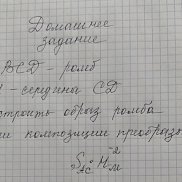 Домашнее
задание
BCD – ромб
– середина CD
строить образ ромба
и композиции преобразо
S_AC ∘ H_M^-2